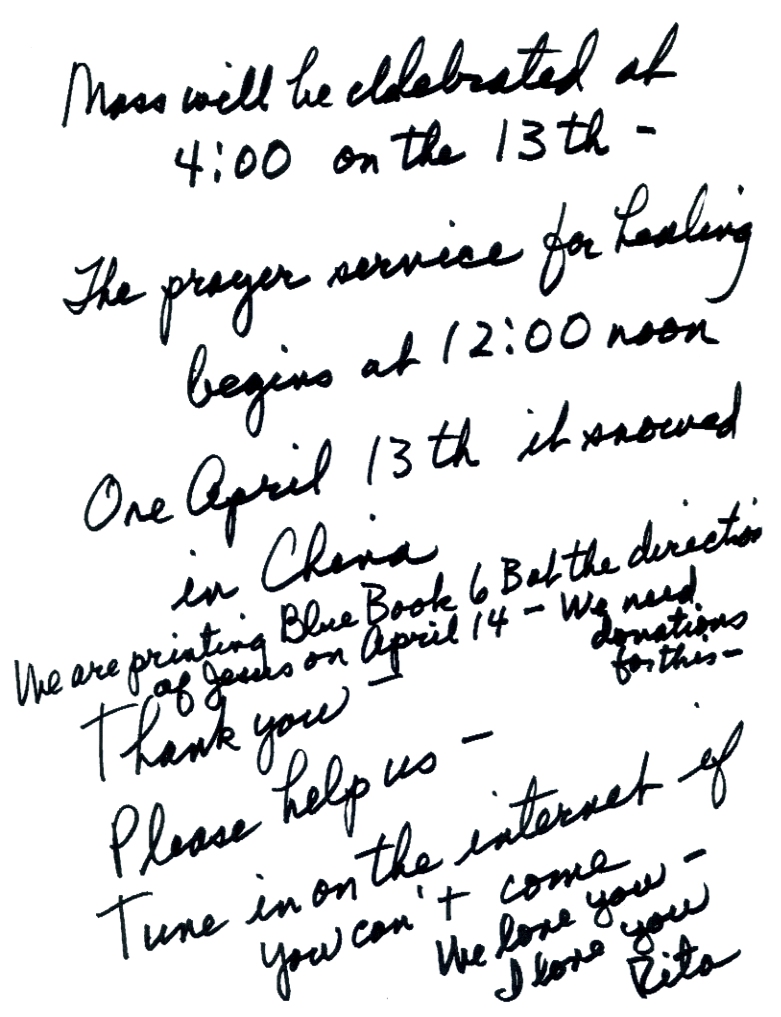 Mass will be celebrated at
4:00 on the 13th -
The prayer service for healing
begins at 12:00 noon
One April 13th it snowed
in China
We are printing Blue Book 6 B at the direction
of Jesus on April 14 - We need
donations
for this -
Thank you -
Please help us -
Tune in on the internet if
you can't come
We love you -
I love you
Rita